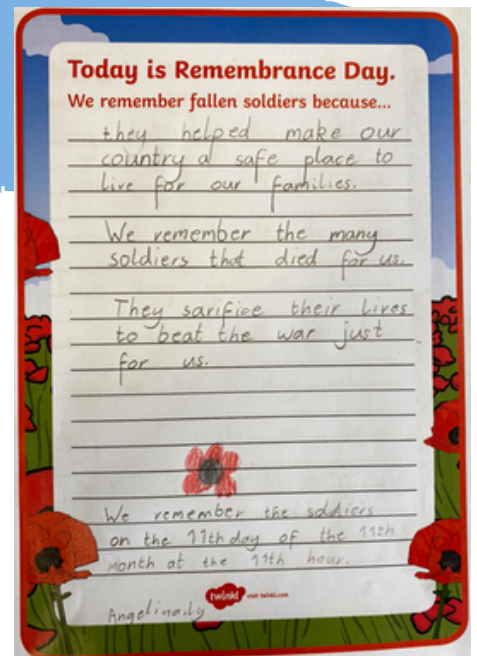 Today is Remembrance Day.
We remember fallen soldiers because...
they helped make our
country a safe place to
live for our families.
We remember the many
soldiers that died for us.
They sarifice their lives
to beat the war just
for us.
We remember the soldiers
on the 11th day of the 11th
month at the 11th hour.
twinkl visit twinkl.com
Angelina.Ly